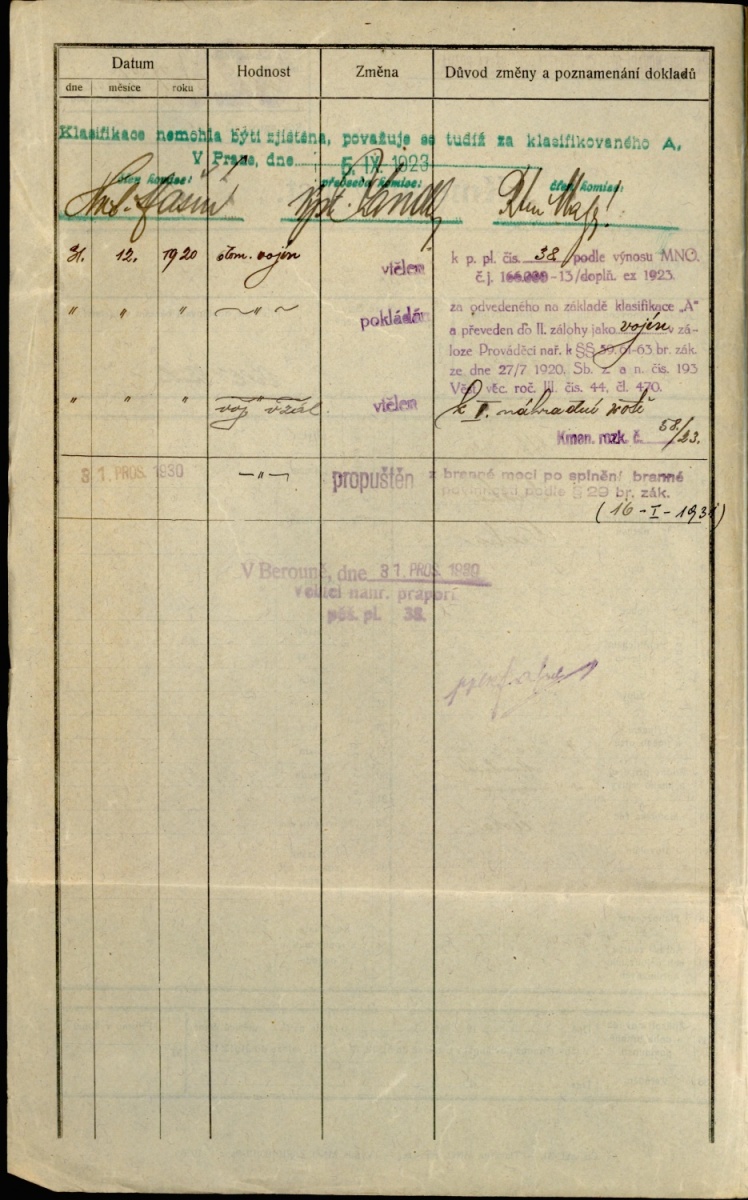 Datum Hodnost Změna Důvod změny a poznamenání dokladů
dne měsíce roku
Klasifikace nemohla býti zjištěna, považuje se tudíž za klasifikovaného A,
V Praze, dne 5. IX. 1923
člen komise: předseda komise: člen komise:
31. 12. 1920 dom. vojín vtělen k p. pl. čís. 38 podle výnosu MNO.
č. j. 166.000-13/doplň. ex 1923.
" " " —"— pokládán za odvedeného na základě klasifikace „A"
a převeden do II. zálohy jako vojín v zá-
loze Prováděcí nař. k §§ 59, 61-63 br. zák.
ze dne 27/7 1920. Sb. z. a n. čís. 193
Věst. věc. roč. III. čís. 44, čl. 470.
" " " —"—
voj. v zál. vtělen k I. náhradní rotě
Kmen. rozk. č. 58./23.
31. PROS. 1930 —"— propuštěn z branné moci po splnění branné
povinnosti podle § 29 br. zák.
(16-I-1931)
V Berouně, dne 31. PROS. 1930
Velící náhr. praporí
pěš. pl. 38.